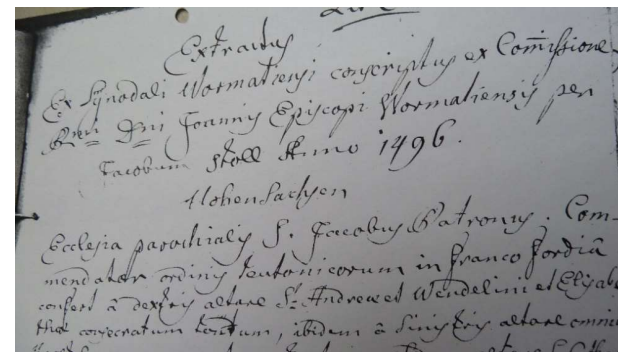 Extractus
Ex Synodali Wormatiensi conscriptus ex Com̄issione
Rmi Dni Joannis Episcopi Wormatiensis per
Jacobum Stoll Anno 1496.
Hohensachsen
Ecclesia parochialis S. Jacobus Patronus. Com-
mendator ordinis teutonicorum in Franco fordiā
confert â dextris altare St. Andreae et Wendelini et Elisabe
thae consecratum, ibidem â sinistris altare omniu